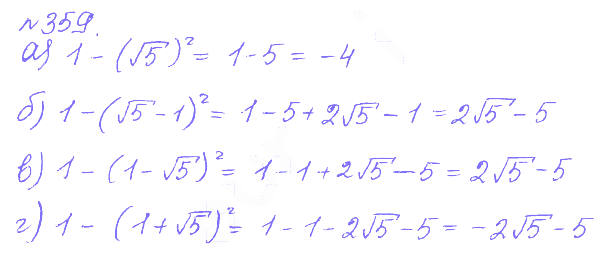 №359.
а) 1 - (√5)² = 1 - 5 = -4
б) 1 - (√5 - 1)² = 1 - 5 + 2√5 - 1 = 2√5 - 5
в) 1 - (1 - √5)² = 1 - 1 + 2√5 - 5 = 2√5 - 5
г) 1 - (1 + √5)² = 1 - 1 - 2√5 - 5 = -2√5 - 5